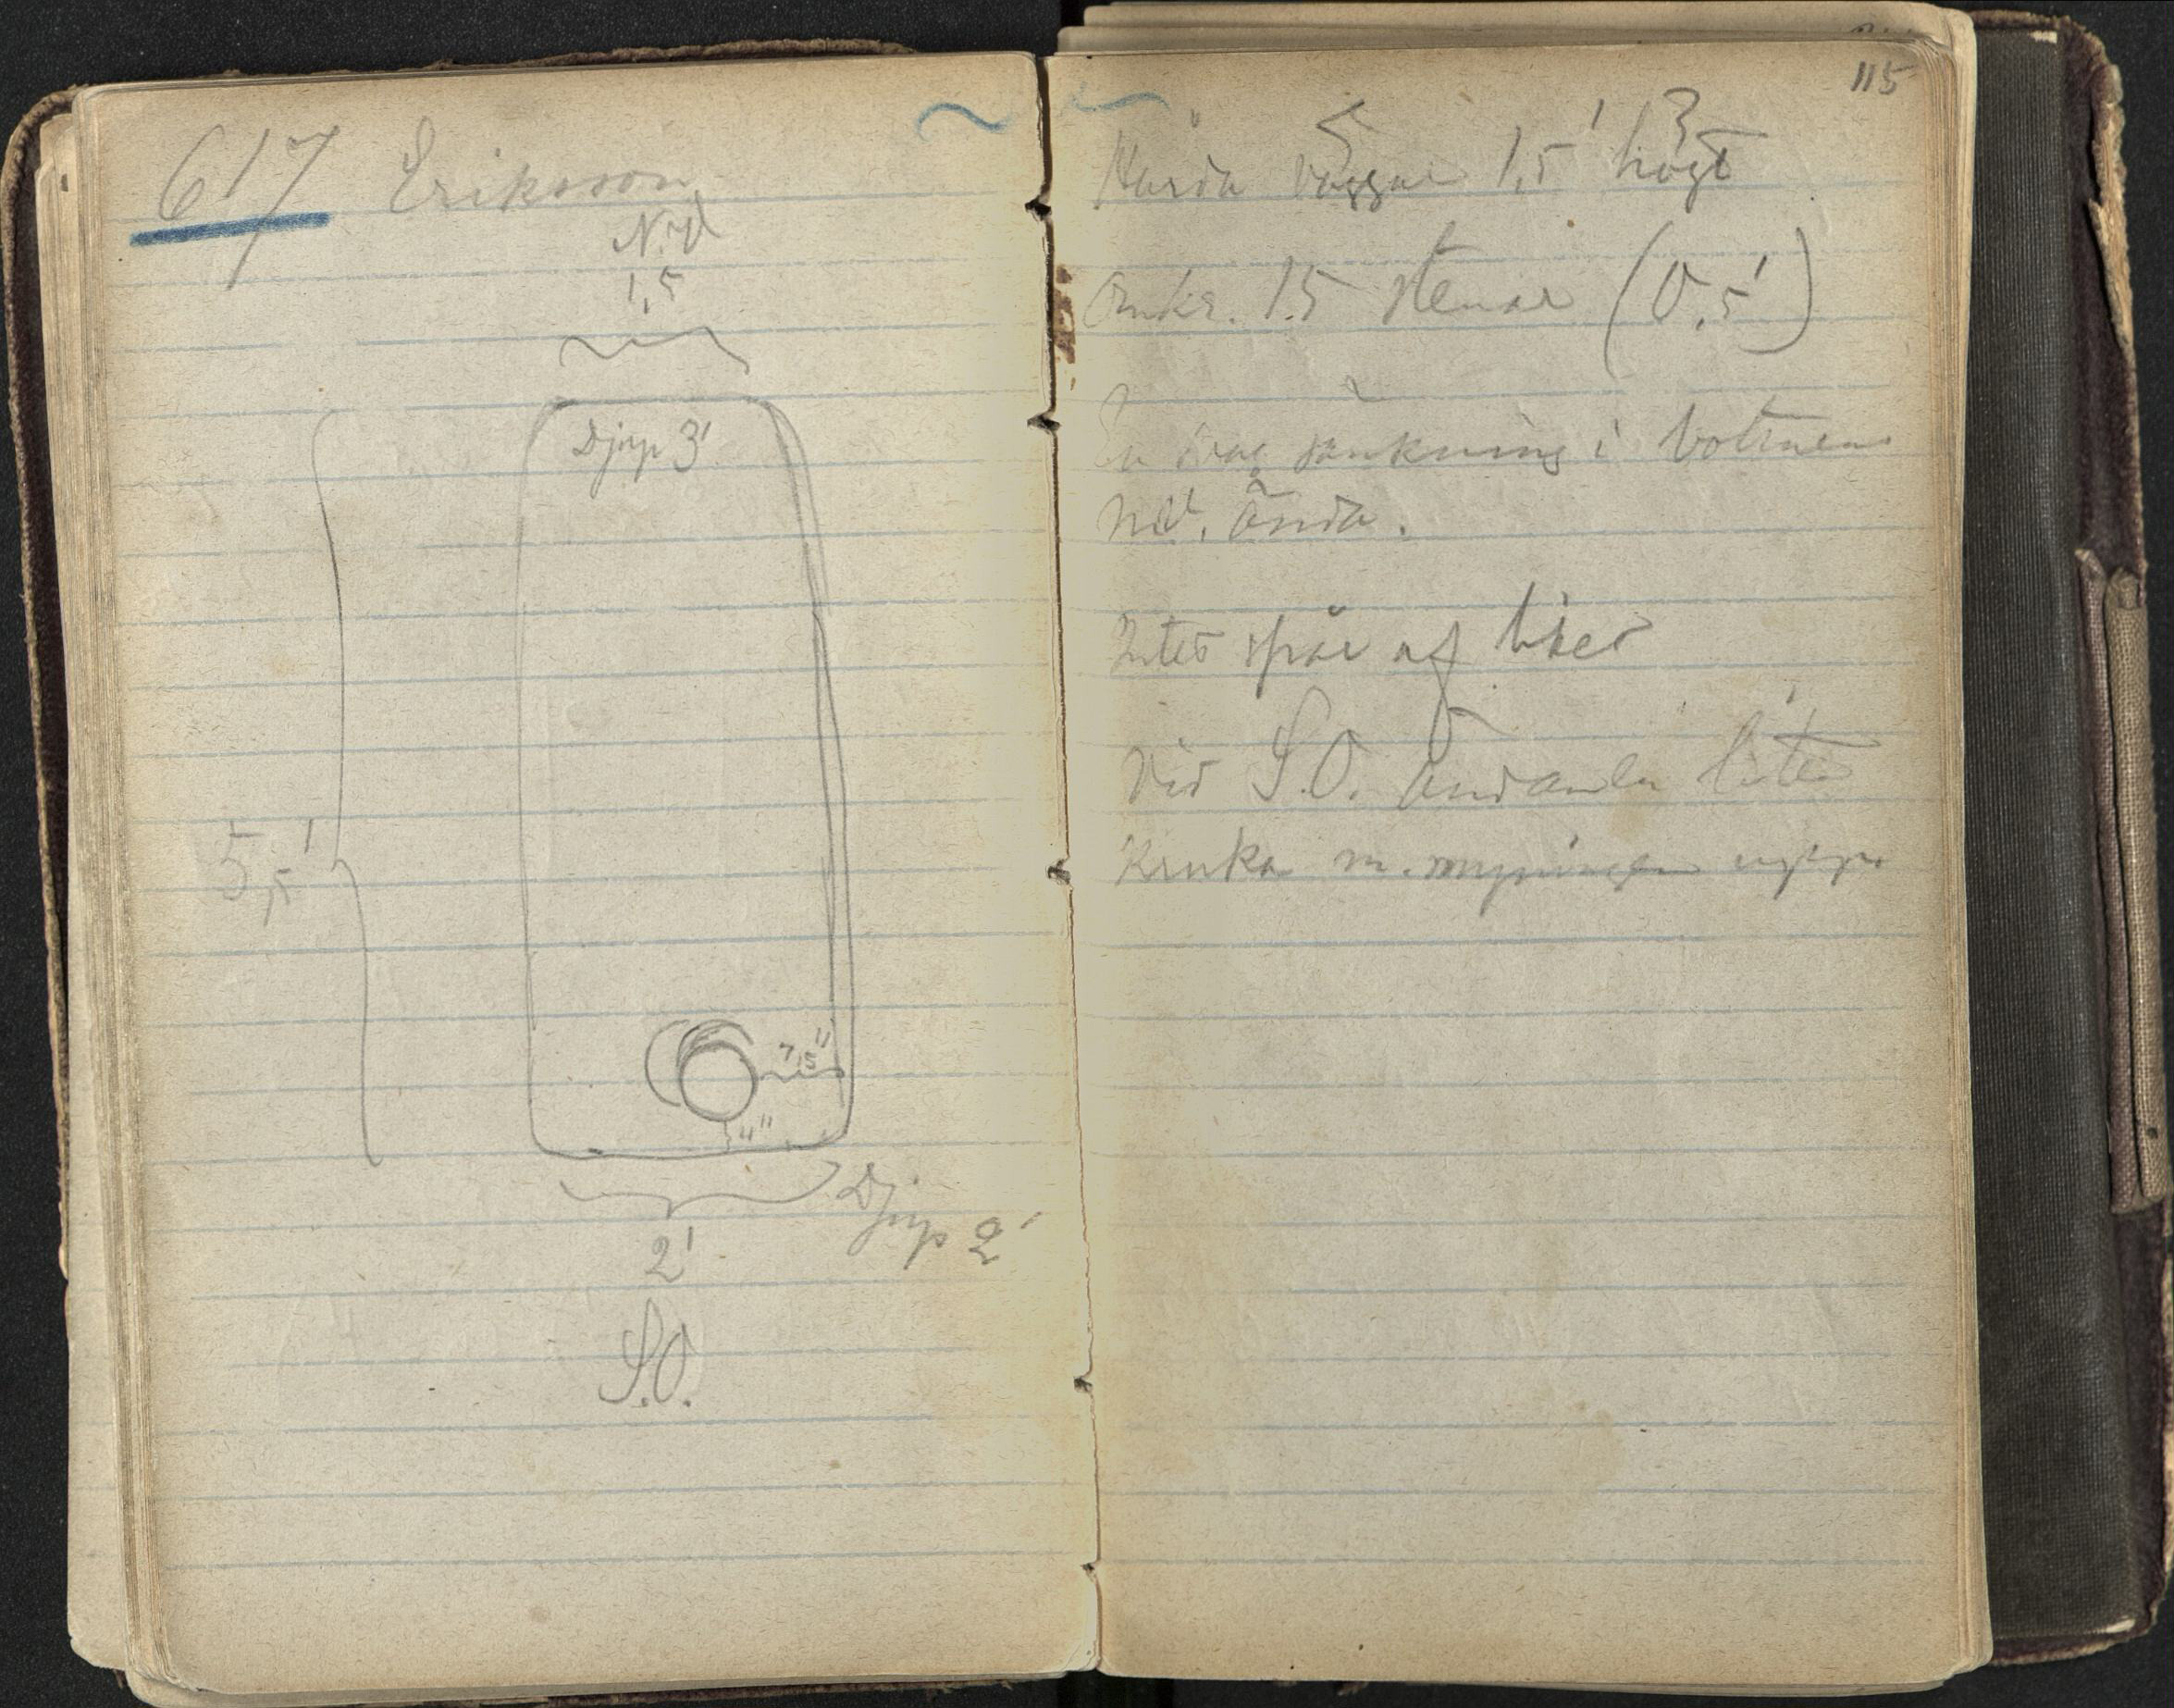 617 Eriksson
N.V
1,5
Djup 3'
5,5'
7,5"
4"
Djup 2'
2'
S.O.
115
Hårda väggar 1,5' högt
Omkr. 15 stenar (0,5')
En svag sänkning i botten
NV. ända.
Intet spår af liket
Vid S.O. ändan liten
Kruka m. mynningen uppåt